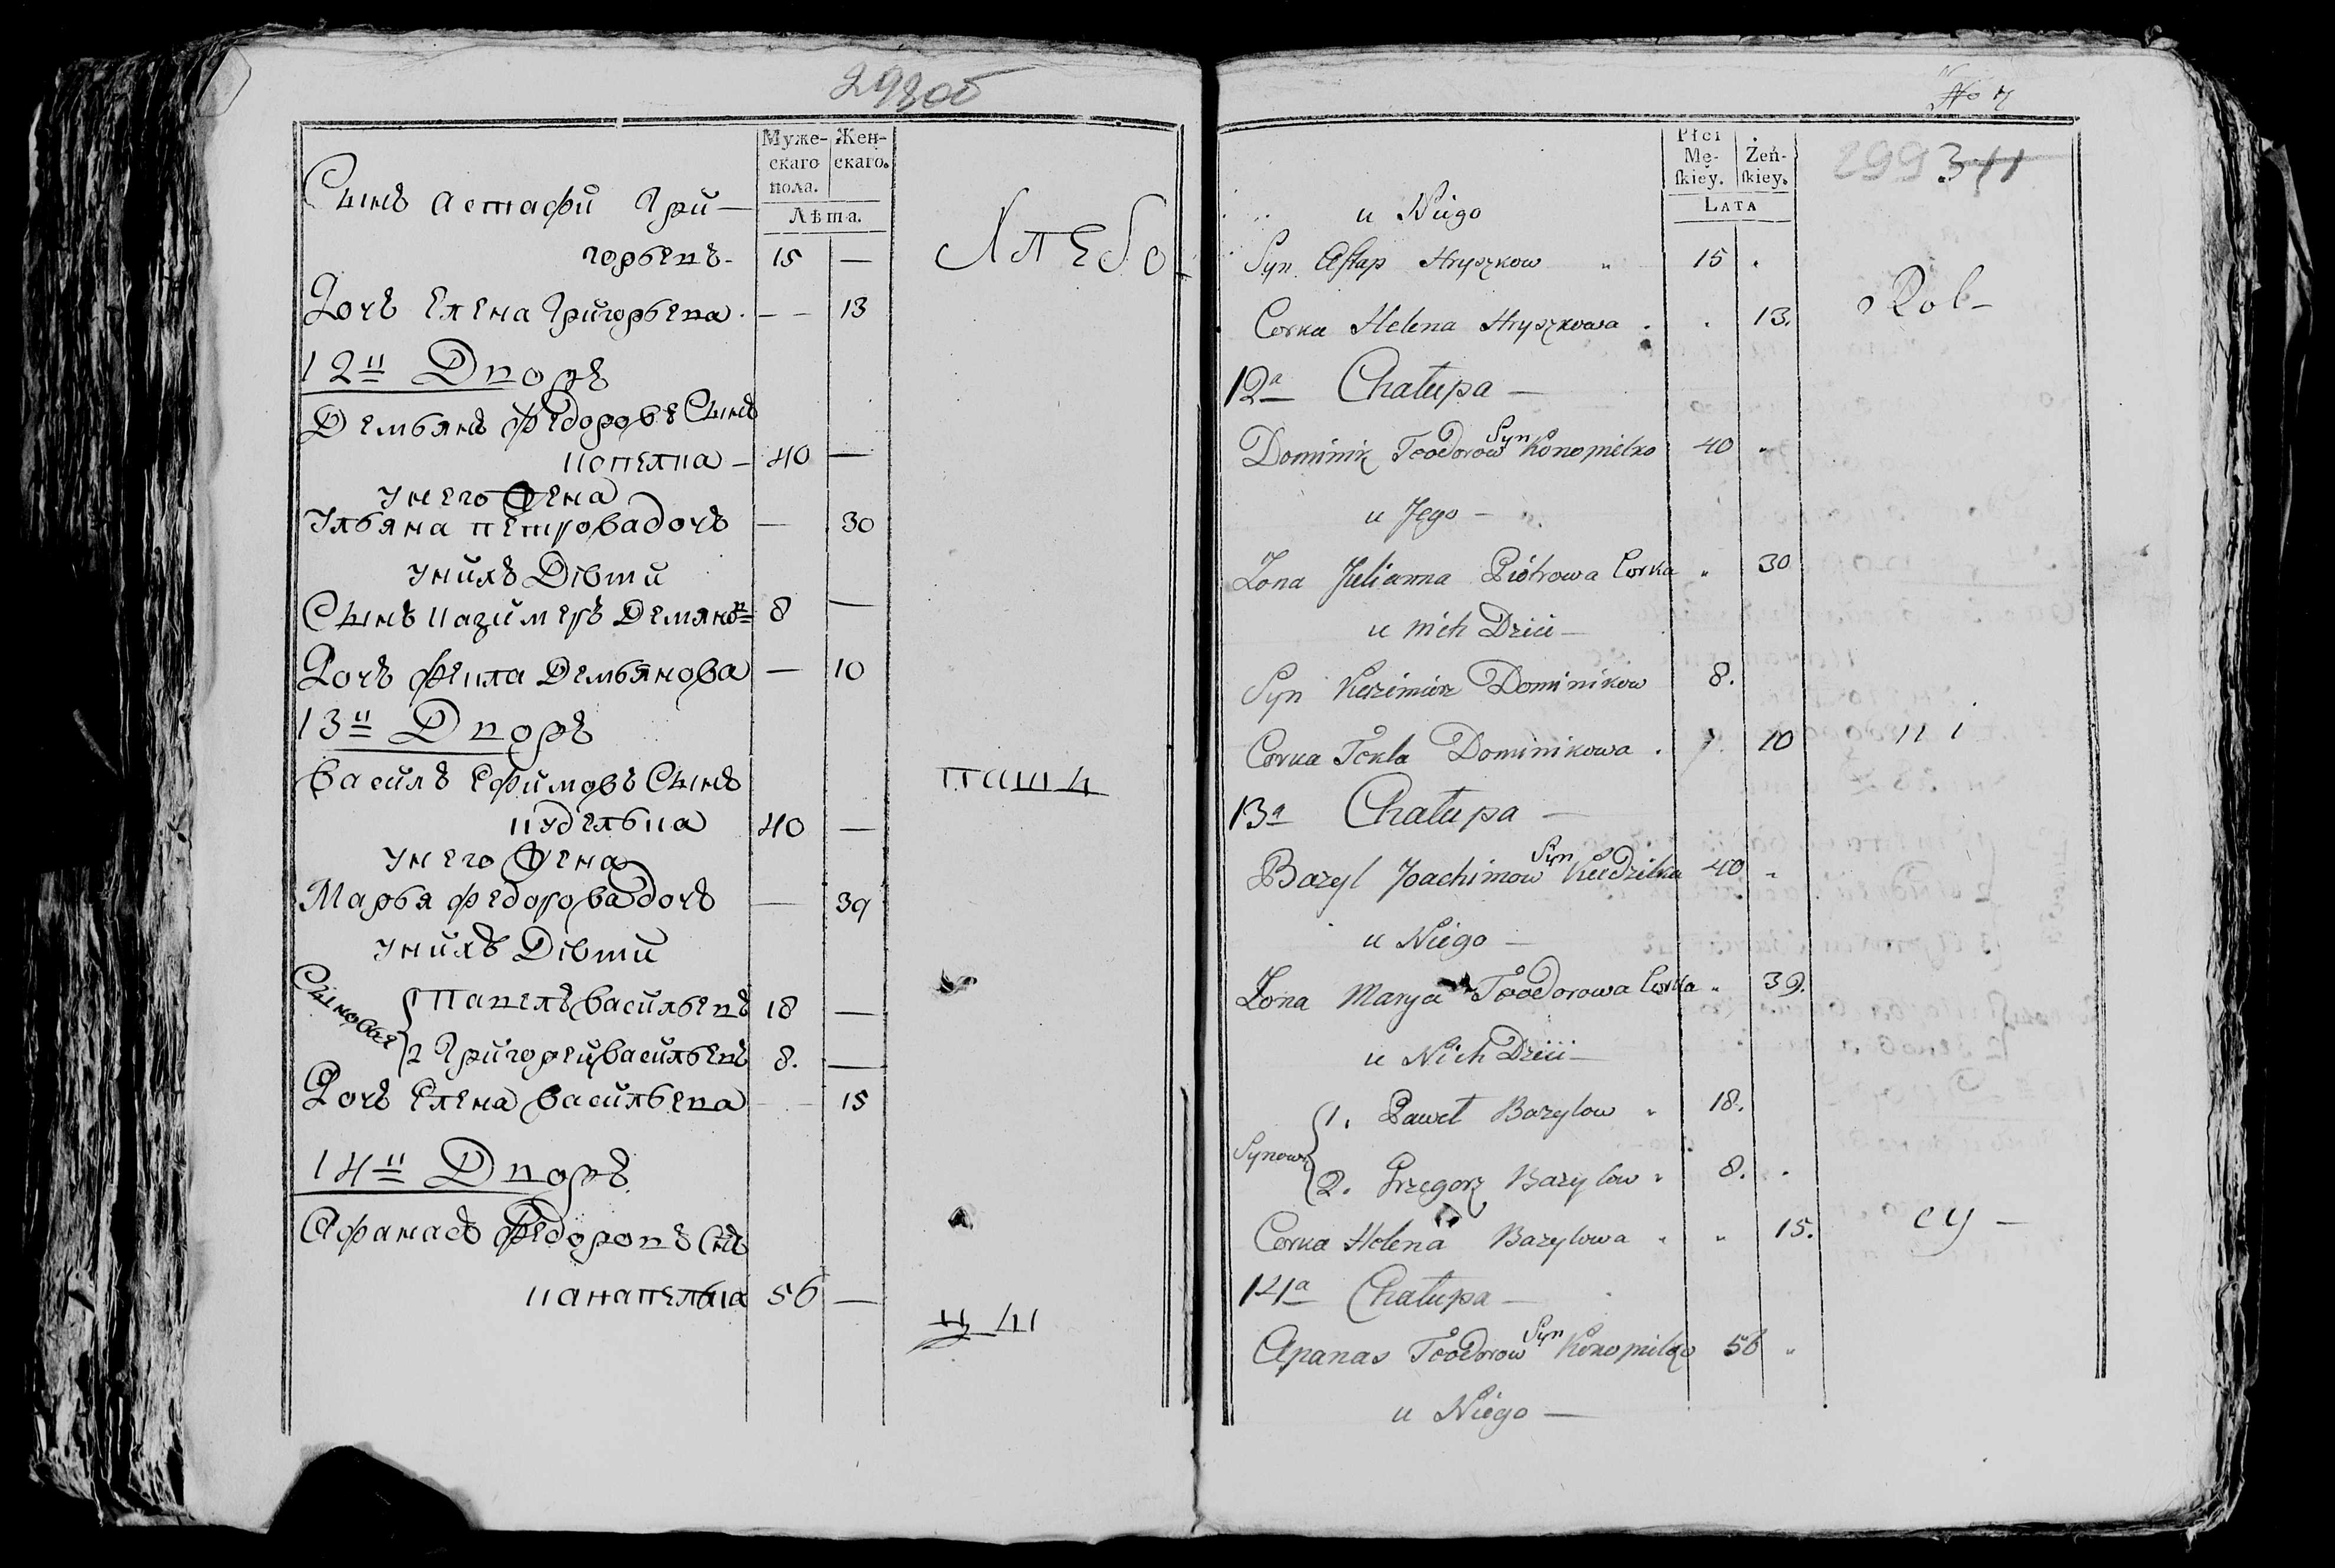 298об
Муже- Жен-
скаго скаго.
пола.
Лѣта.
Сынъ Астафи Гри-
горьевъ - 15 —
Дочь Елена Григорьева. — 13
12й Дворъ
Демьянъ Федоровъ Сынъ
— 40 —
У него Жена
Ульяна Петрова дочь — 30
У нихъ Дѣти
Сынъ Казимеръ Демянов 8 —
Дочь Фекла Демьянова — 10
13й Дворъ
Василь Ефимовъ Сынъ
куделька 40 —
У него Жена
Марья Федорова дочь — 39
У нихъ Дѣти
Сыновья
1 Павелъ Васильевъ 18 —
2 Григорей Васильевъ 8. —
Дочь Елена Васильева — 15
14й Дворъ
Афанасъ Федоровъ Снъ
канапелька 56 —
Хлебо-
паш
цы
No 7
299 341
Płci
Mę- Żeń-
ſkiey. ſkiey.
LATA
u Niego
Syn Aſtap Hryszkow " 15 .
Corka Helena Hryszkowa . . 13.
12a Chałupa —
Dominik Teodorow Syn Konopielko 40 "
u Jego —
Żona Julianna Piótrowa Corka " 30
u nich Dzieci —
Syn Kazimierz Dominikow 8.
Corka Tekla Dominikowa . 10
13a Chałupa —
Bazyl Joachimow Syn Kudzielka 40 "
u Niego —
Żona Marya Teodorowa Corka " 39.
u Nich Dzieci —
Synowie
1. Paweł Bazylow " 18.
2. Grzegorz Bazylow " 8. .
Corka Helena Bazylowa " " 15.
14a Chałupa —
Apanas Teodorow Syn Konopielko 56 "
u Niego —
Rol-
ni
cy —